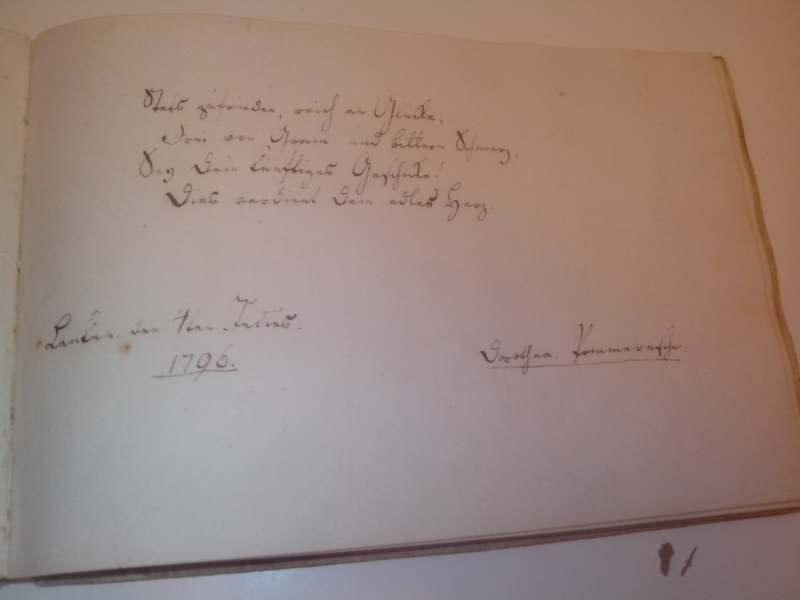 Stets zufrieden, reich an Glücke,
Frei von Gram und bittern Schmerz,
Sey Dein künftiges Geschicke!
Dies verdient Dein edles Herz.
Lanken den 4ten Julius.
1796.
Dorothea Pommeresche